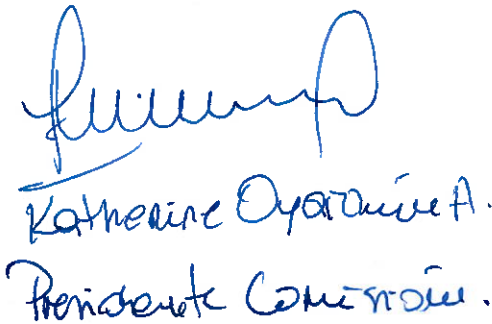 Katherine Oyarzún A.
Presidenta Comisión.